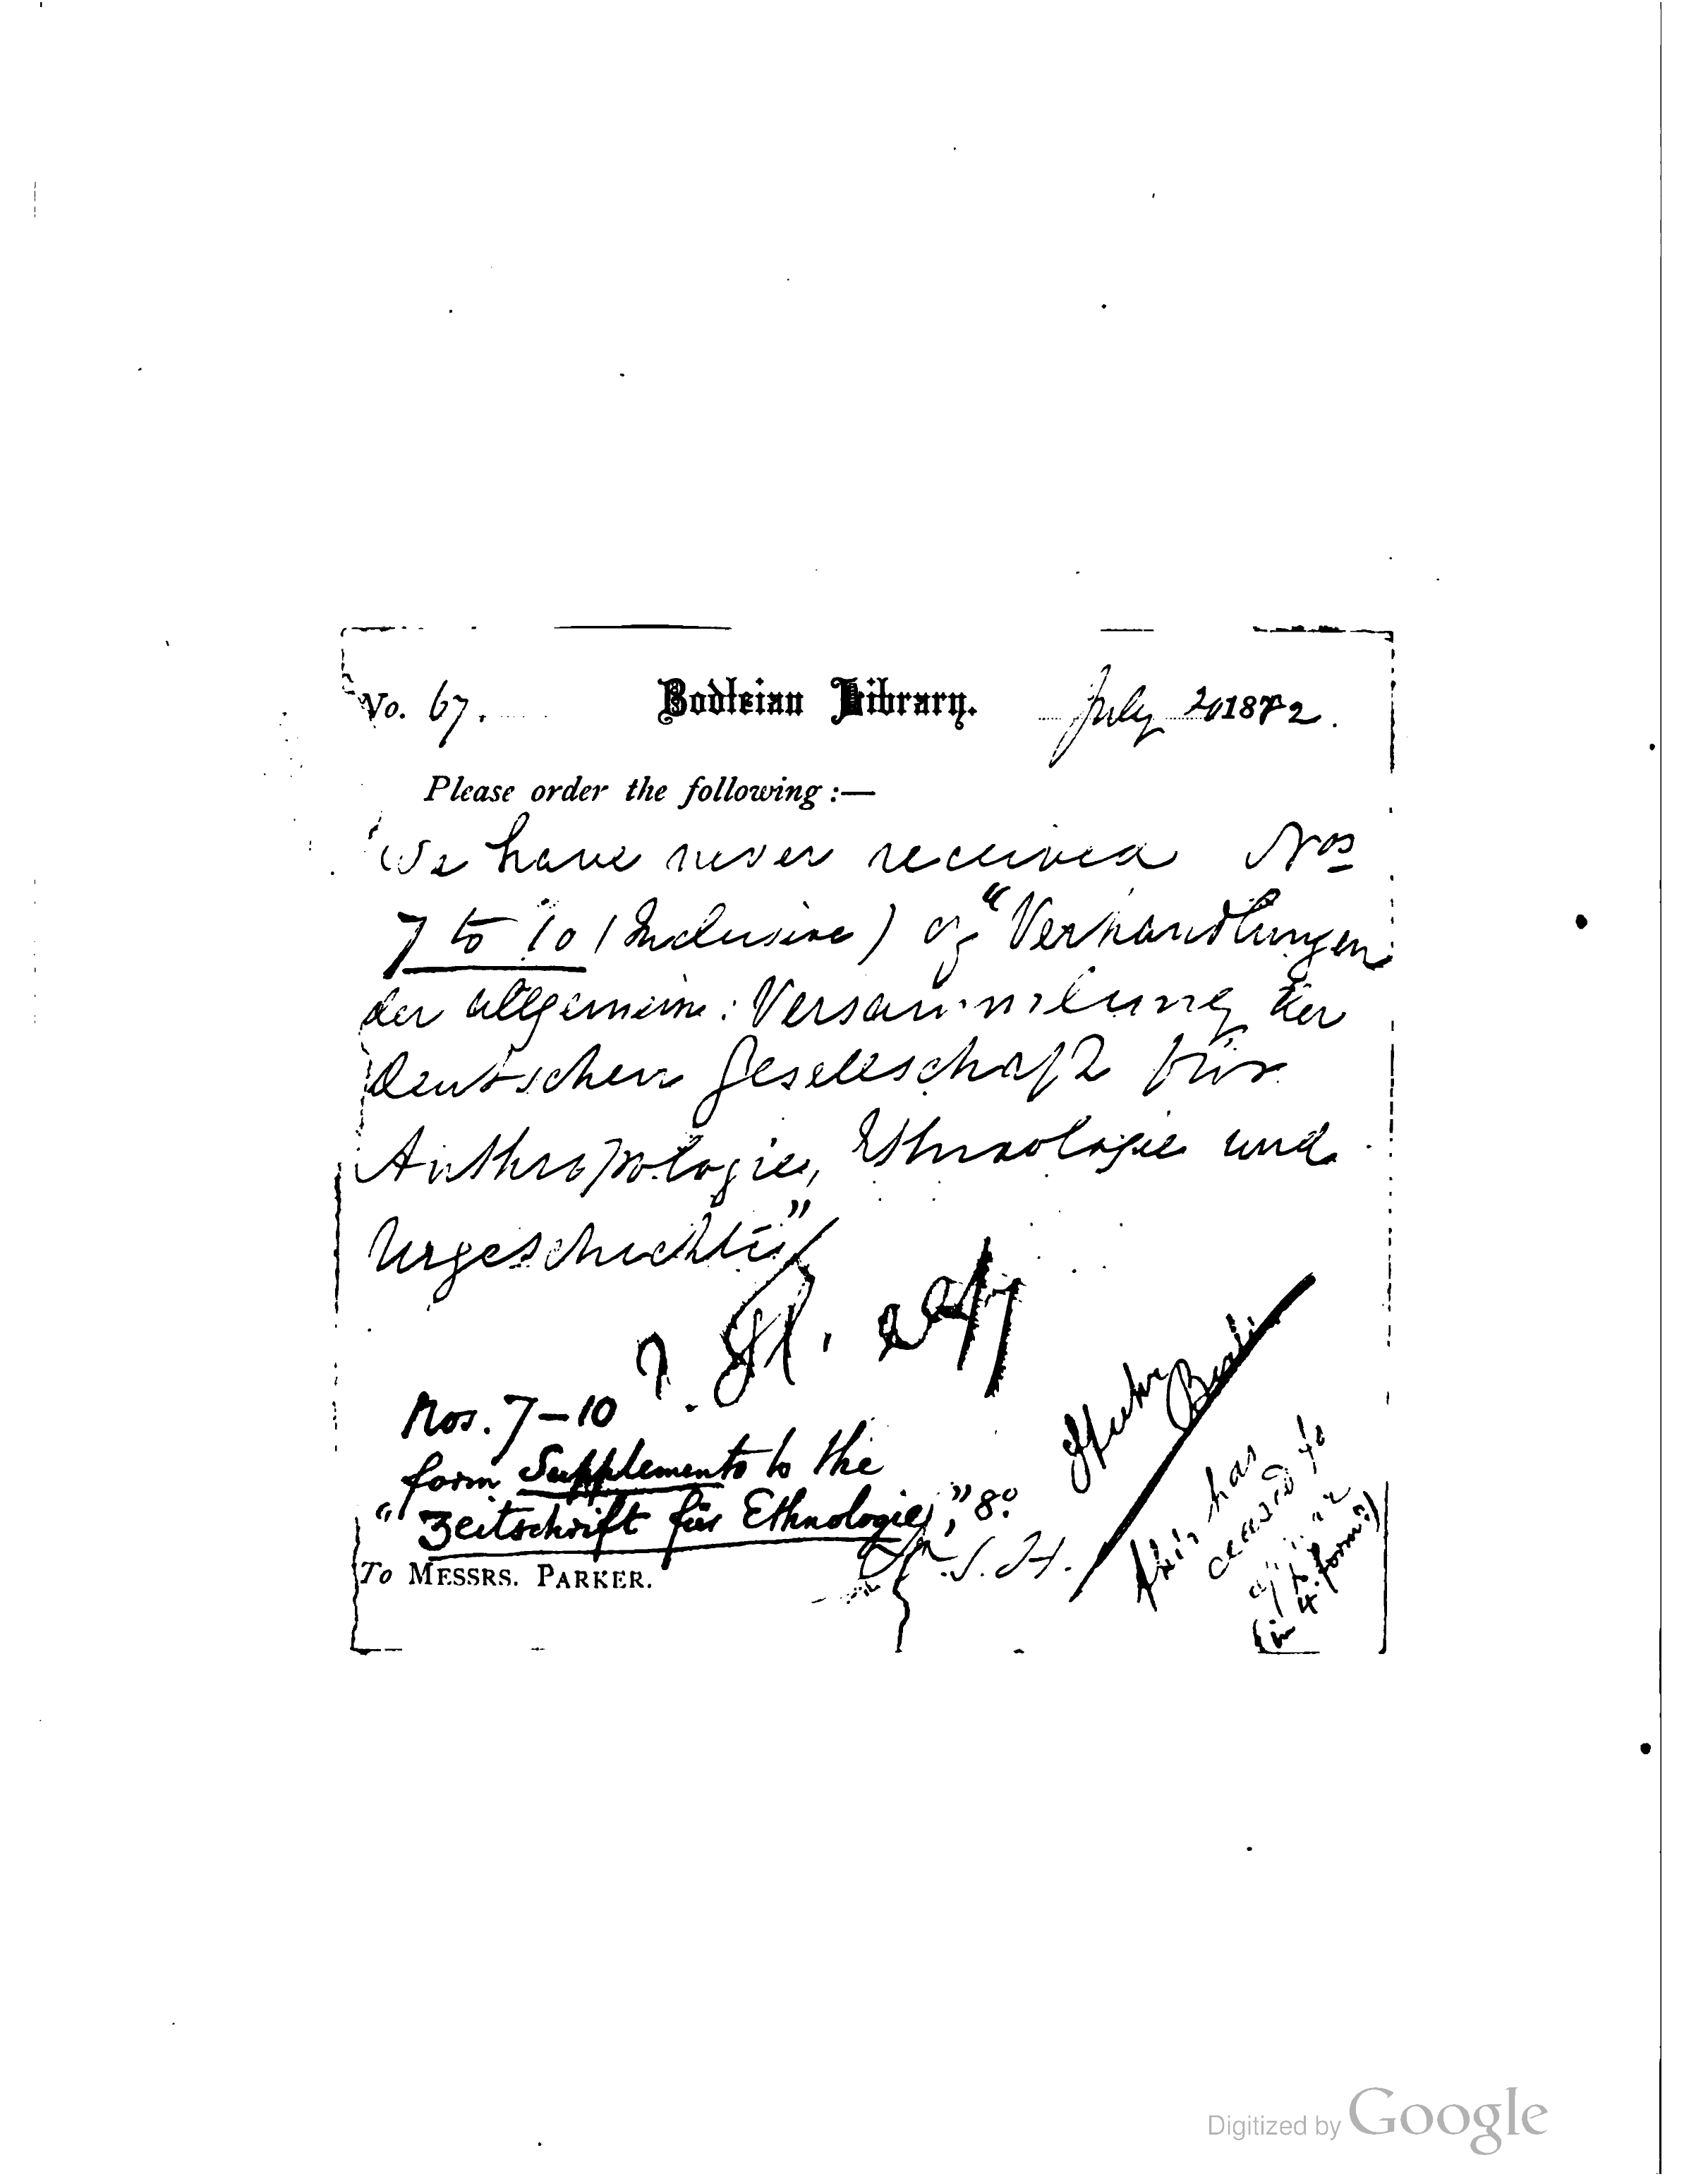 No. 67. Bodleian Library. July 2, 1872.
Please order the following :—
We have never received Nos
7 to 10 (Inclusive) of "Verhandlungen
der allgemein: Versammlung der
deutschen Gesellschaft für
Anthropologie, Ethnologie und
Urgeschichte"
Nos. 7–10
form Supplements to the
"Zeitschrift für Ethnologie," 8o
To MESSRS. PARKER.
this has
ceased to
(in 4. form?)
Digitized by Google